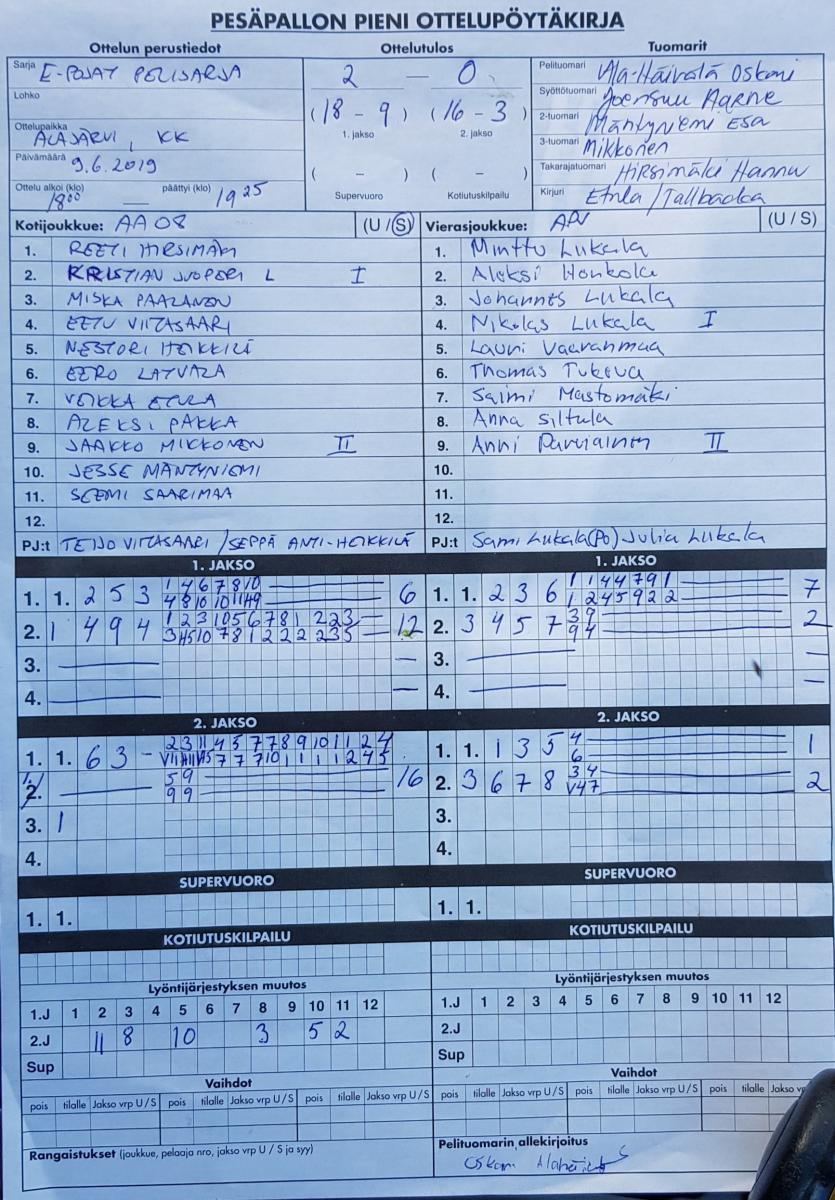 PESÄPALLON PIENI OTTELUPÖYTÄKIRJA
Ottelun perustiedot
Sarja E-POJAT PELISARJA
Lohko
Ottelupaikka ALAJÄRVI, KK
Päivämäärä 9.6.2019
Ottelu alkoi (klo) 18 00 päättyi (klo) 19 25
Ottelutulos
2 — 0
(18 - 9) (16 - 3)
1. jakso 2. jakso
( - ) ( - )
Supervuoro Kotiutuskilpailu
Tuomarit
Pelituomari Ala-Häivälä Oskari
Syöttötuomari Joensuu Aarne
2-tuomari Mäntyniemi Esa
3-tuomari Mikkonen
Takarajatuomari Hirsimäki Hannu
Kirjuri Etula/Tallbacka
Kotijoukkue: AA 08 (U / S)
1. REETI HIRSIMÄKI
2. KRISTIAN L I
3. MISKA PAALANEN
4. EETU VIITASAARI
5. NESTORI HEIKKILÄ
6. EERO LATVALA
7. VEIKKA ETULA
8. ALEKSI PAKKA
9. JAAKKO MIKKONEN II
10. JESSE MÄNTYNIEMI
11. SEEMI SAARIMAA
12.
PJ:t TEIJO VIITASAARI / SEPPÄ ANTI-HEIKKILÄ
Vierasjoukkue: (U / S)
1. Minttu Lukala
2. Aleksi Honkola
3. Johannes Lukala
4. Nikolas Lukala I
5. Lauri Vaaranmaa
6. Thomas Tukeva
7. Saimi Mastomäki
8. Anna Siltula
9. Anni Parviainen II
10.
11.
12.
PJ:t Sami Lukala (Po) Julia Lukala
1. JAKSO
1. 1. 2 5 3 1 4 6 7 8 10 6
4 8 10 10 11 4 9
2. 1 4 9 4 1 2 3 10 5 6 7 8 1 2 2 3 12
3.
4.
1. JAKSO
1. 1. 2 3 6 1 1 4 4 7 9 1 7
1 2 4 5 9 2 2
2. 3 4 5 7 3 9 2
9 4
3.
4.
2. JAKSO
1. 1. 6 3 - 2 3 11 4 5 7 7 8 9 10 1 1 2 4
2. 5 9 16
9 9
3. 1
4.
2. JAKSO
1. 1. 1 3 5 4 1
6
2. 3 6 7 8 3 4 2
V47
3.
4.
SUPERVUORO
1. 1.
SUPERVUORO
1. 1.
KOTIUTUSKILPAILU
KOTIUTUSKILPAILU
Lyöntijärjestyksen muutos
1.J 1 2 3 4 5 6 7 8 9 10 11 12
2.J 11 8 10 3 5 2
Sup
Lyöntijärjestyksen muutos
1.J 1 2 3 4 5 6 7 8 9 10 11 12
2.J
Sup
Vaihdot
pois tilalle Jakso vrp U / S pois tilalle Jakso vrp U / S pois tilalle Jakso vrp U / S
Vaihdot
pois tilalle Jakso vrp U / S pois tilalle Jakso vrp U / S pois tilalle Jakso
Rangaistukset (joukkue, pelaaja nro, jakso vrp U / S ja syy)
Pelituomarin allekirjoitus